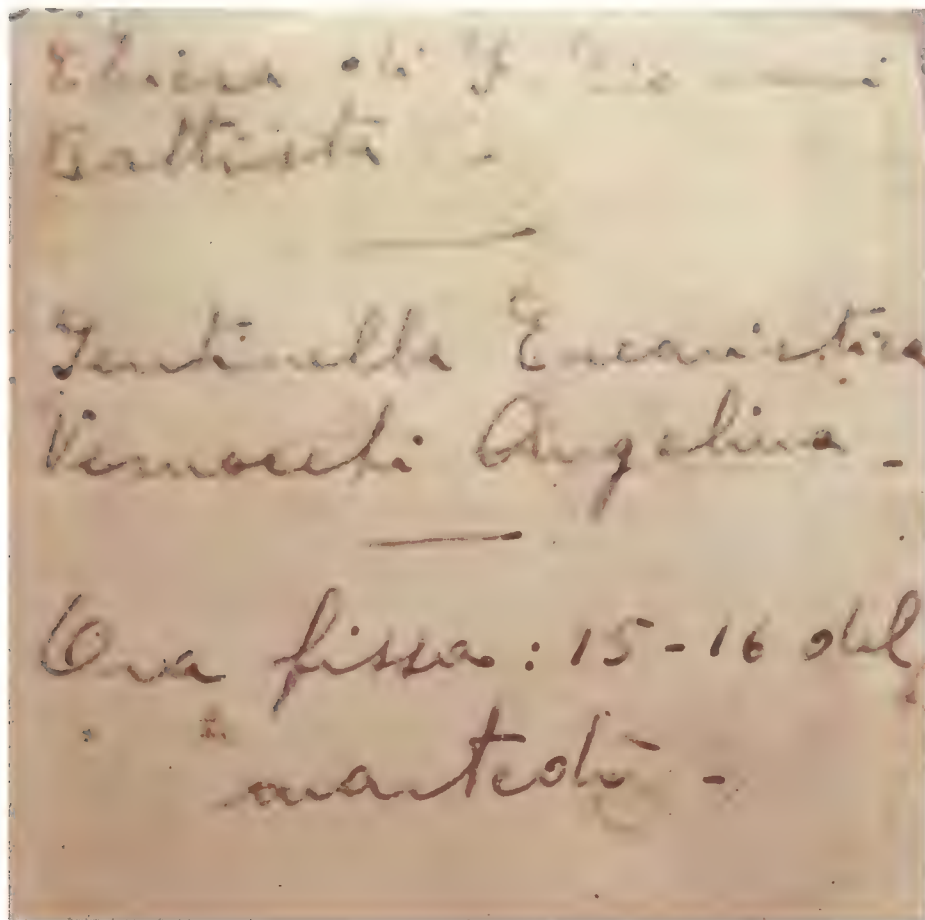 Chiesa di S. Gio
Battista -
Sentinella Eucaristica
Angelina -
Ora fissa: 15-16 del
martedì -